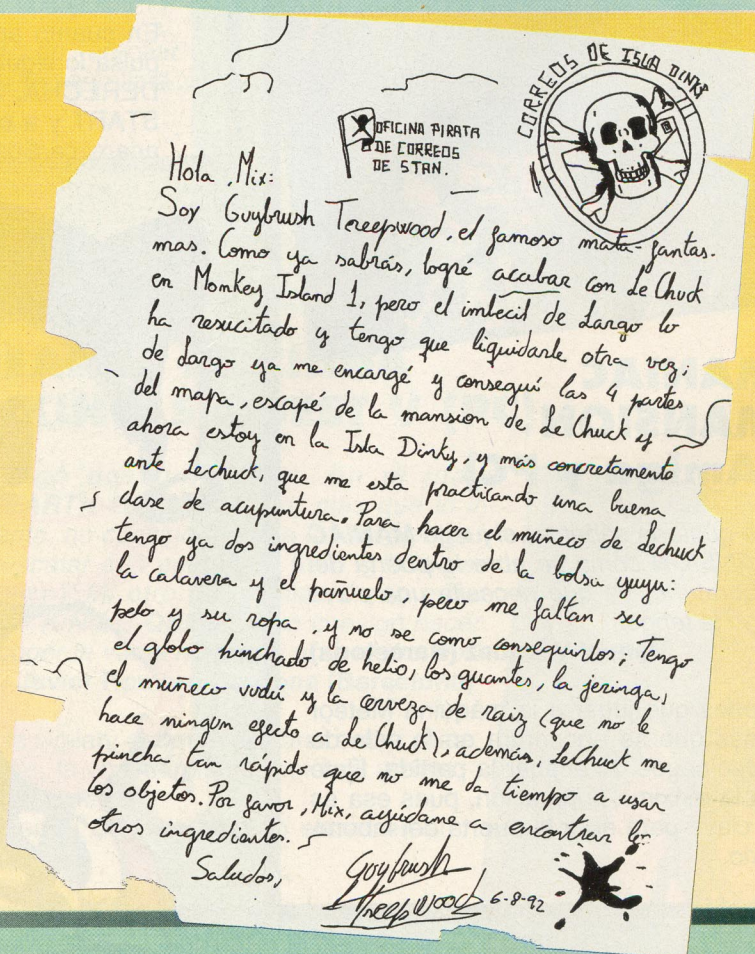 CORREOS DE ISLA DINKY
OFICINA PIRATA
DE CORREOS
DE STAN.
Hola, Mix:
Soy Guybrush Treepwood, el famoso mata-fantas-
mas. Como ya sabrás, logré acabar con Le Chuck
en Monkey Island 1, pero el imbecil de Largo lo
ha resucitado y tengo que liquidarle otra vez;
de Largo ya me encargé y conseguí las 4 partes
del mapa, escapé de la mansion de Le Chuck y
ahora estoy en la Isla Dinky, y más concretamente
ante Lechuck, que me esta practicando una buena
clase de acupuntura. Para hacer el muñeco de Lechuck
tengo ya dos ingredientes dentro de la bolsa yuyu:
la calavera y el pañuelo, pero me faltan su
pelo y su ropa, y no se como conseguirlos; Tengo
el globo hinchado de helio, los guantes, la jeringa,
el muñeco vudú y la cerveza de raiz (que no le
hace ningun efecto a Le Chuck), además, LeChuck me
pincha tan rápido que no me da tiempo a usar
los objetos. Por favor, Mix, ayúdame a encontrar los
otros ingredientes.
Saludos,
Guybrush
Treepwood 6-8-92